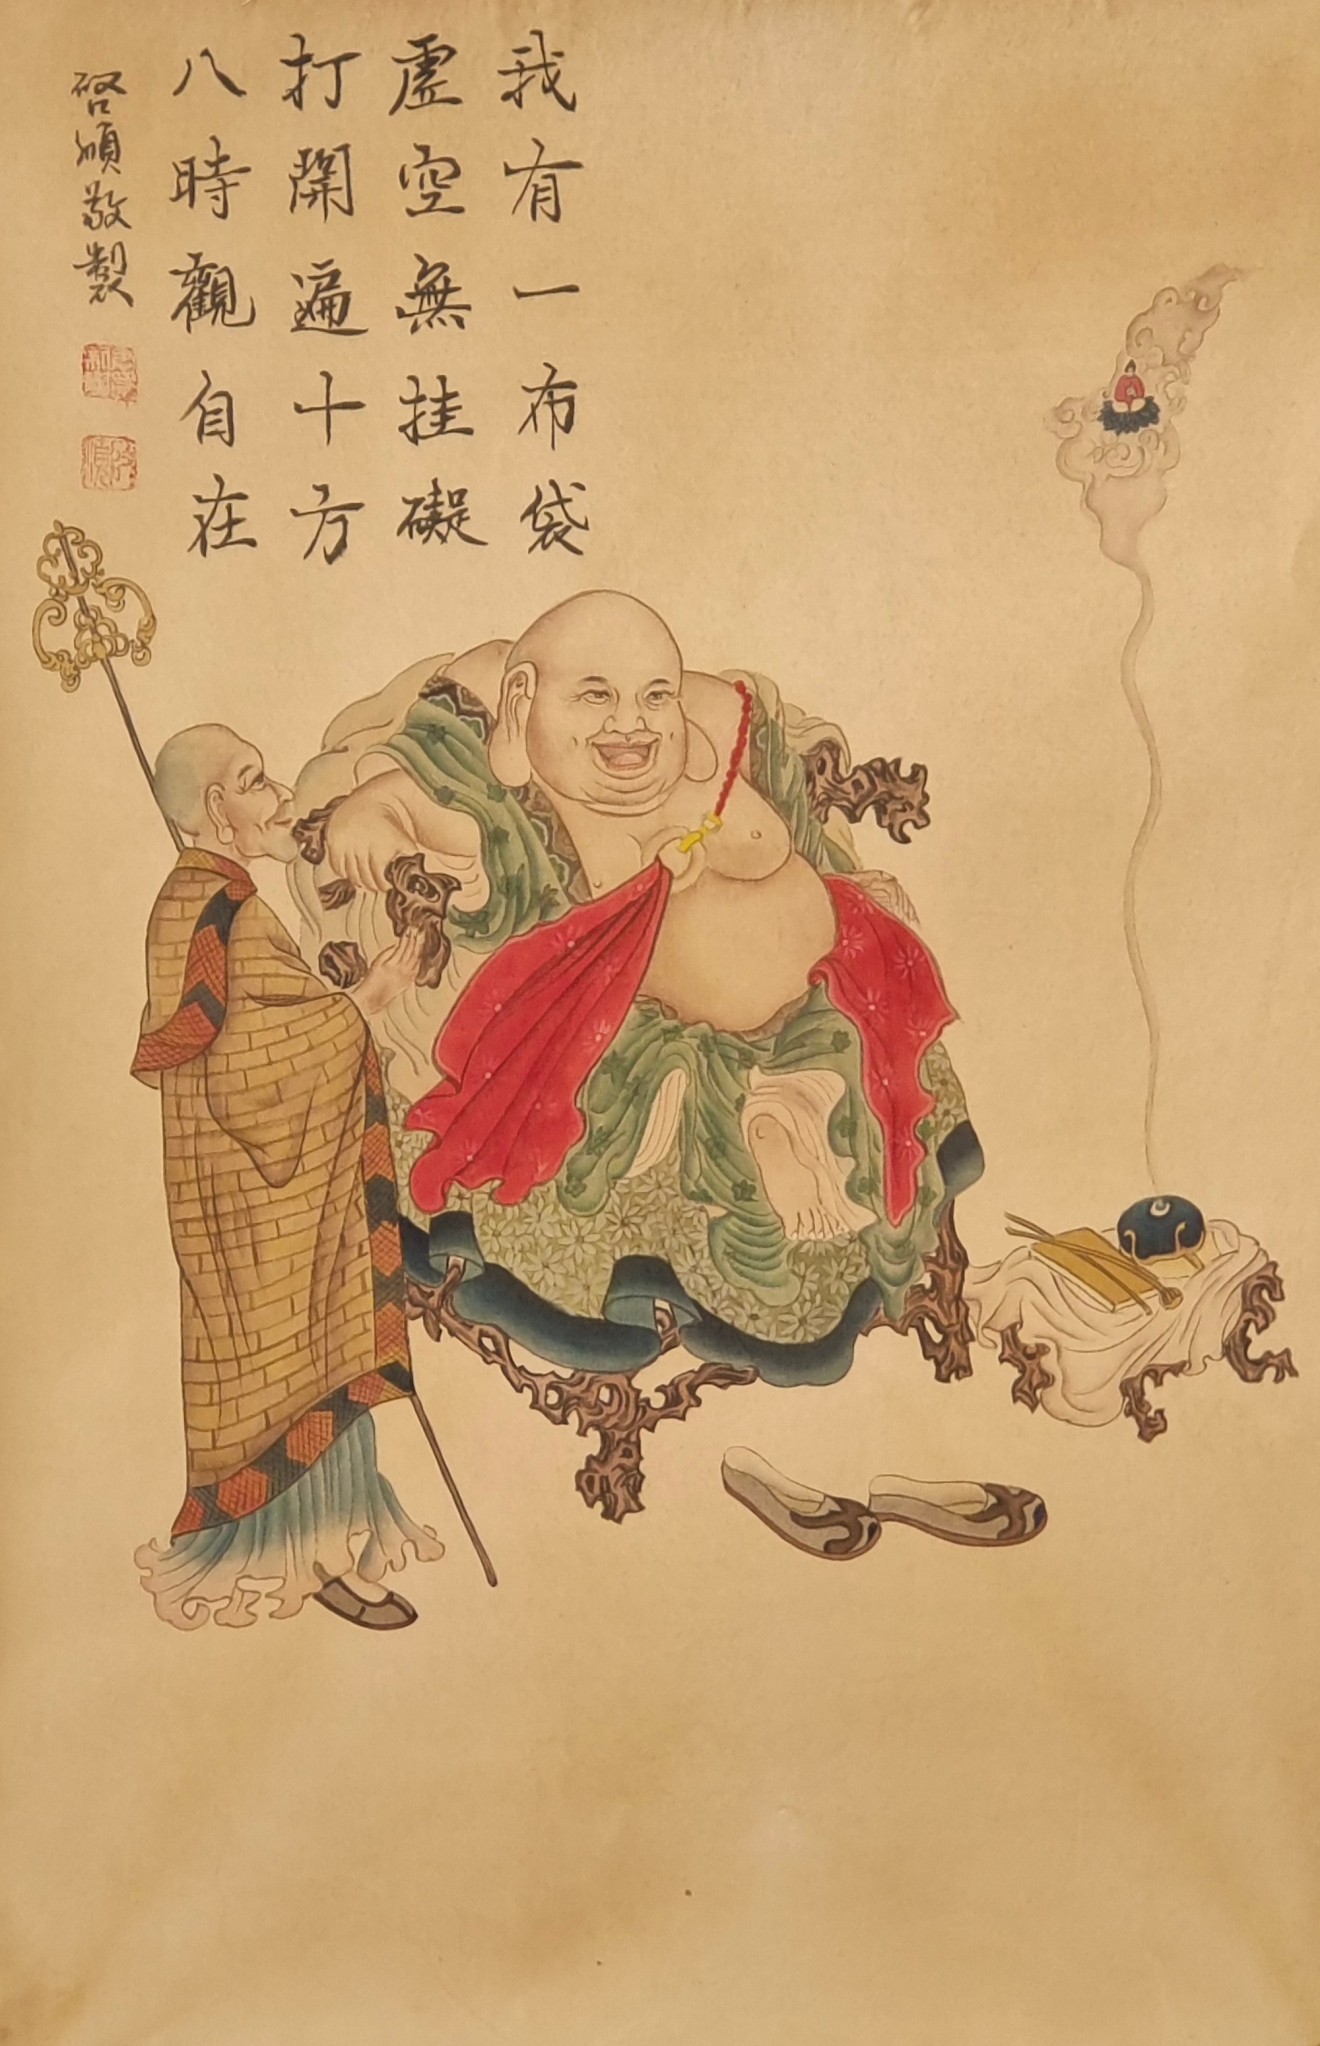 我有一布袋
虛空無挂礙
打開遍十方
八時觀自在
啓順敬製